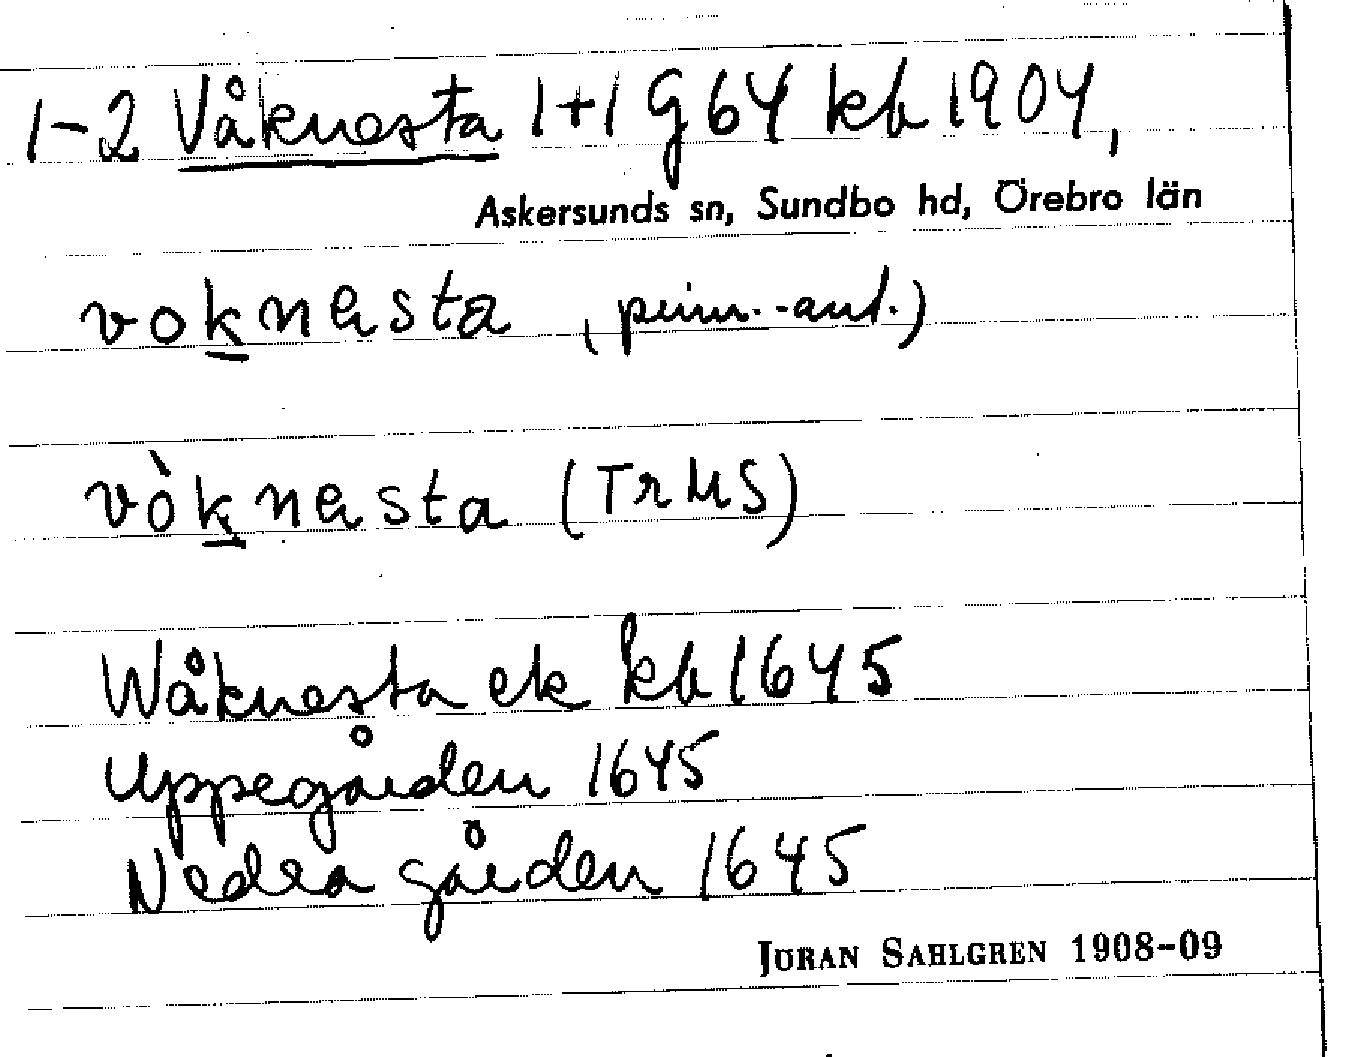 1-2 Våknesta 1+1 g 64 kb 1904,
Askersunds sn, Sundbo hd, Örebro län
voknesta (prim.-ant.)
vòknesta (Tr MS)
Wåknesta ek kb 1645
Uppegården 1645
Nedra gården 1645
JÖRAN SAHLGREN 1908-09